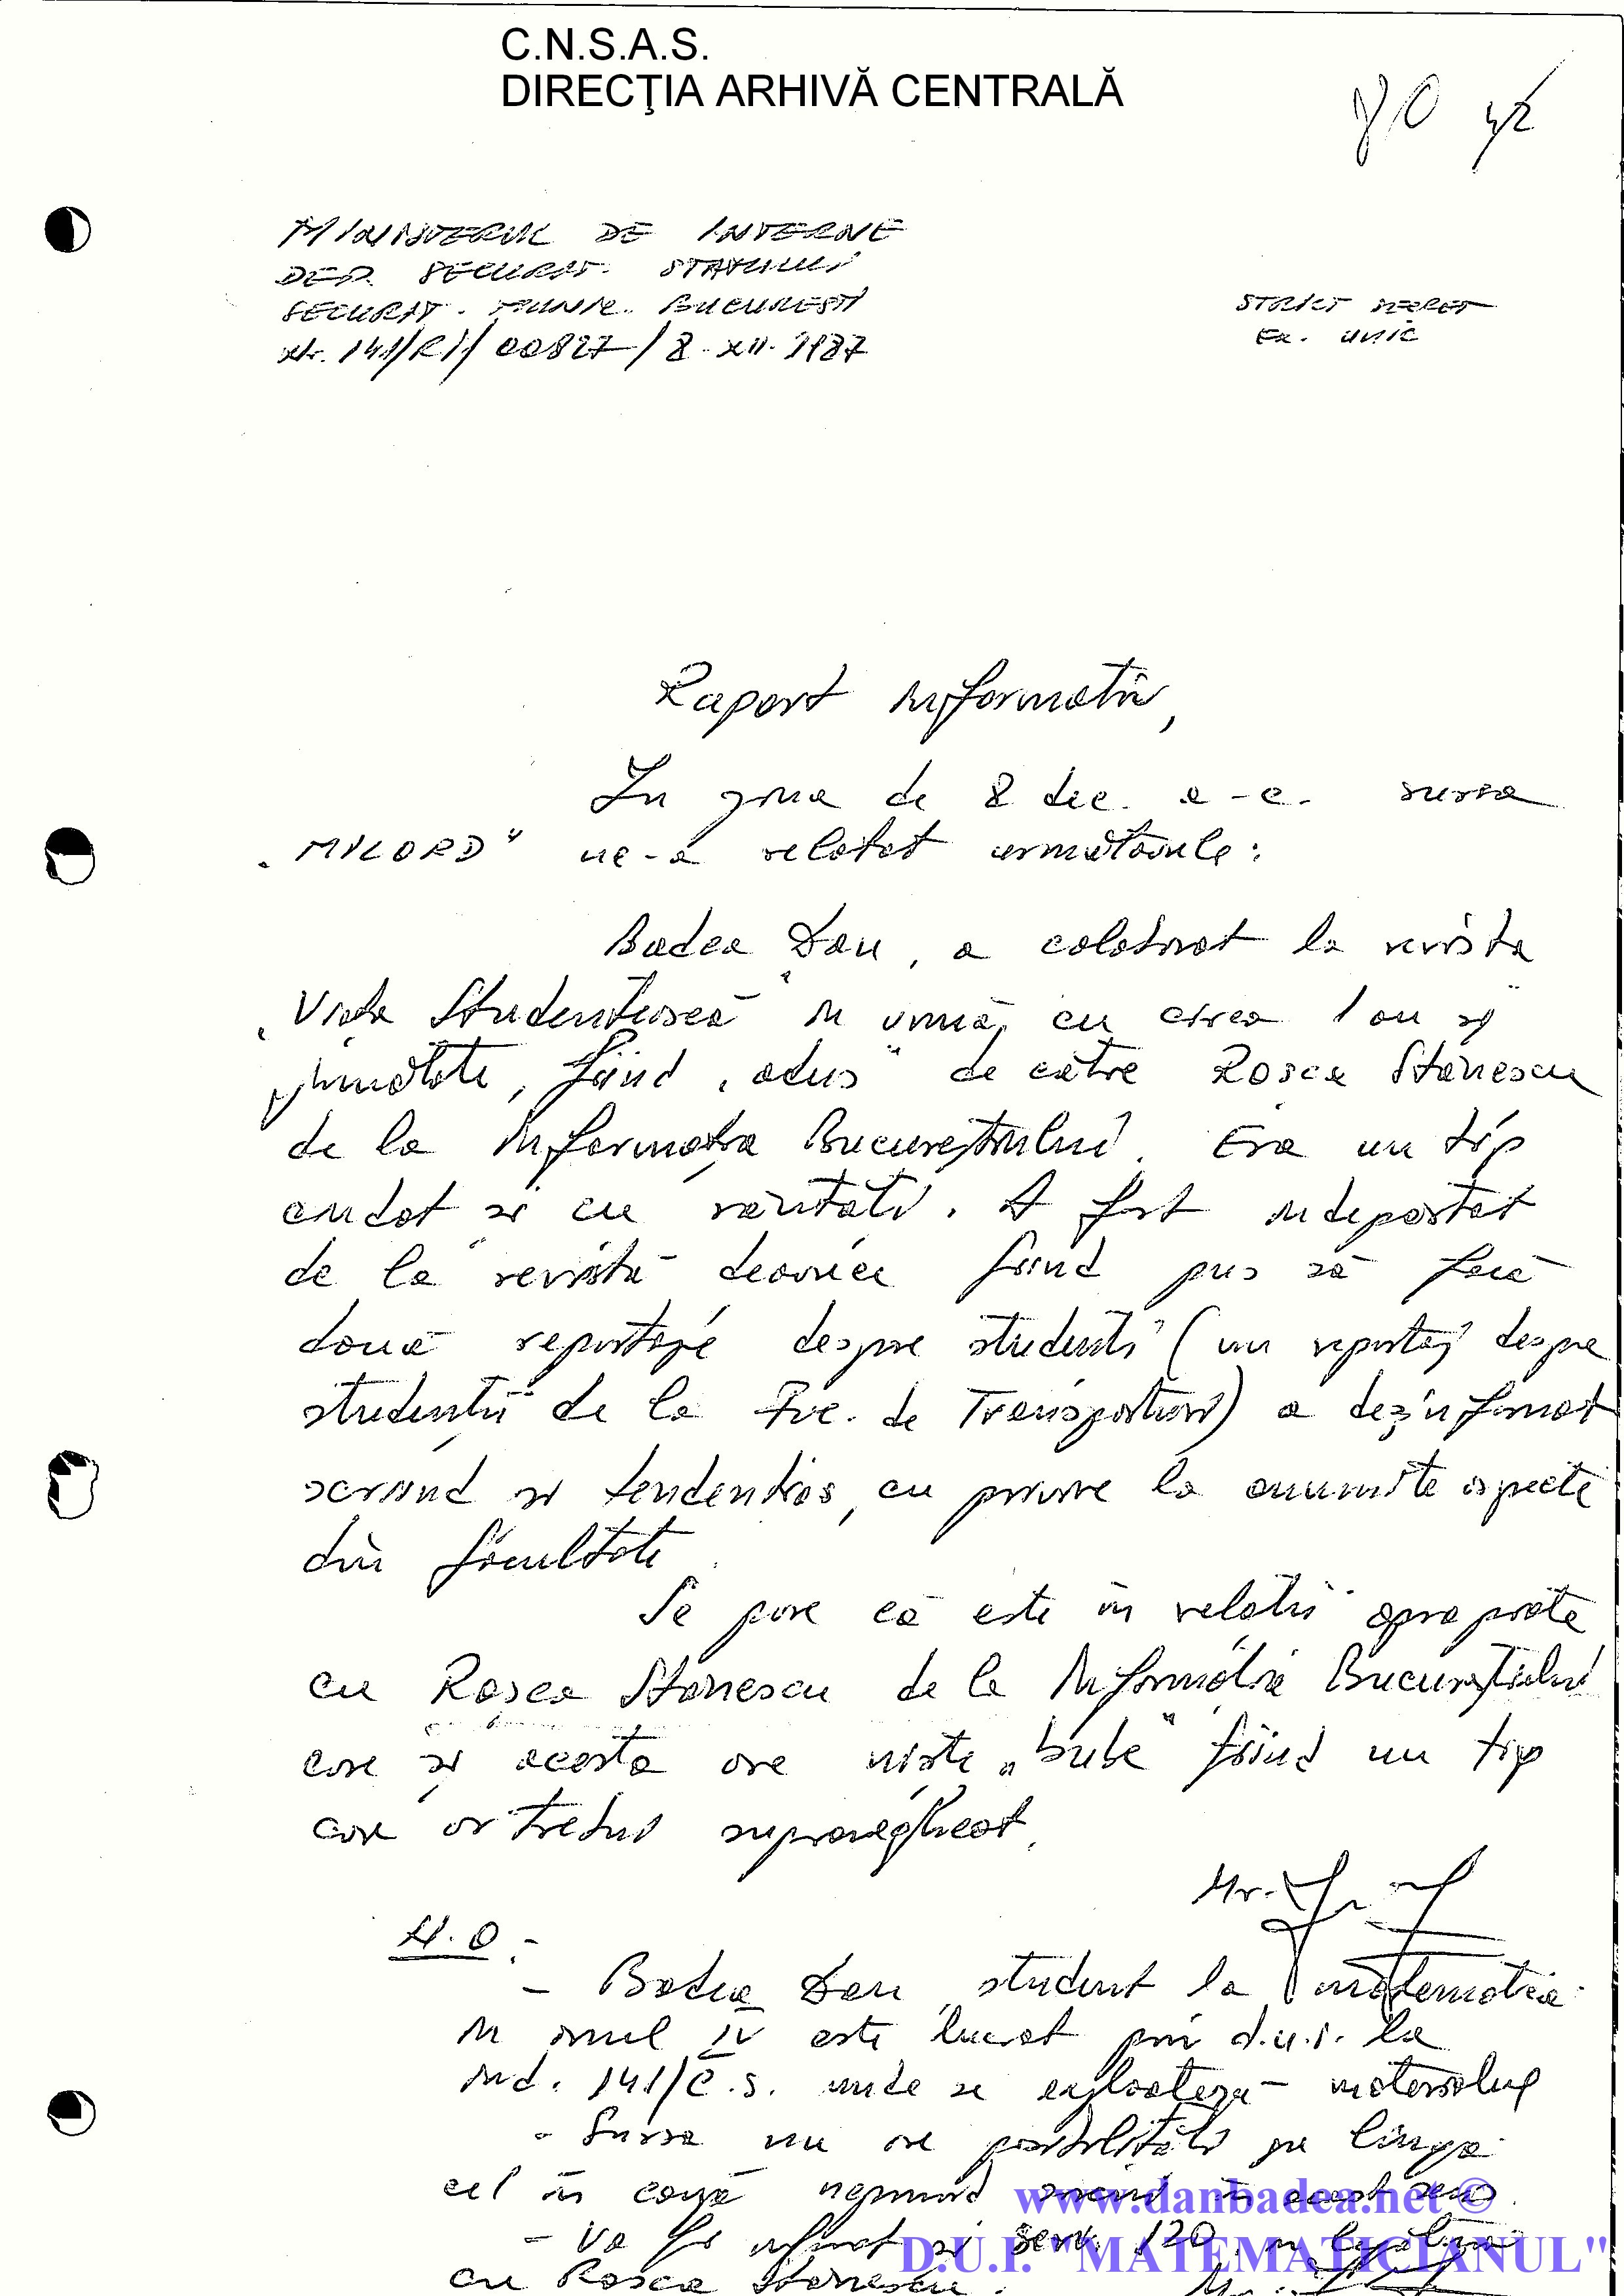 C.N.S.A.S.
DIRECŢIA ARHIVĂ CENTRALĂ
80 42
MINISTERUL DE INTERNE
DEP. SECURIT. STATULUI
SECURIT. MUNIC. BUCURESTI
Nr. 141/RI/00827/8.XII.1987
STRICT SECRET
Ex. unic
Raport informativ,
In ziua de 8 dec. a-c. sursa
"MILORD" ne-a relatat urmatoarele:
Badea Dan, a colaborat la revista
"Viața Studențească" în urmă, cu circa 1 an și
jumătate, fiind "adus" de către Rosca Stanescu
de la Informația Bucureștiului. Era un tip
ciudat și cu vanități. A fost îndepartat
de la revistă deoarece fiind pus să facă
două reportaje despre studenți (un reportaj despre
studenții de la Fac. de Transporturi) a dezinformat
scriind și tendențios, cu privire la anumite aspecte
din facultate.
Se pare că este în relații apropiate
cu Rosca Stanescu de la Informația Bucureștiului
care și acesta are niște "bube" fiind un tip
care ar trebui supravegheat.
Mr.
N.O.-
- Badea Dan, student la matematica
în anul IV este lucrat prin d.u.i. la
ind. 141/C.S. unde se exploatează materialul
- Sursa nu are posibilități pe lînga
cel în cauză neprimind sarcini în acest sens.
- Va fi informat și Serv. 120, în legătură
cu Rosca Stanescu.
www.danbadea.net ©
D.U.I. "MATEMATICIANUL"